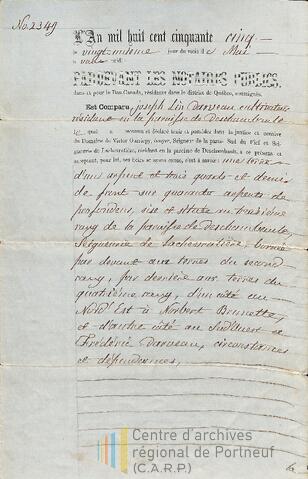 No. 2349
L'An mil huit cent cinquante cinq
le vingt-unième jour du mois de Mai
avant midi
PARDEVANT LES NOTAIRES PUBLICS,
dans et pour le Bas-Canada, résidans dans le district de Québec, soussignés,
Est Comparu, joseph Léon Darveau cultivateur
résidant en la paroisse de Deschambault
le quel a reconnu et déclaré tenir et posséder dans la justice et censive
du Domaine de Victor Ecuyer, Seigneur de la partie Sud du Fief et Seigneurie
de Lachevrotière, résident en la paroisse de Deschambault, à ce présent et
acceptant, pour lui, ses hoirs et ayans cause, c'est à savoir: une terre
d'un arpent et trois quarts et demie
de front sur quarante arpents de
profondeur, sise et située au troisième
rang de la paroisse de deschambault,
Seigneurie de Lachevrotière, bornée
par devant aux terres du second
rang, par derrière aux terres du
quatrième rang, d'un côté au
Nord'Est à Norbert Brunette,
et d'autre côté au Sud'Ouest et
Frédéric Darveau, circonstances
et dépendances,
Centre d'archives
régional de Portneuf
(C.A.R.P.)